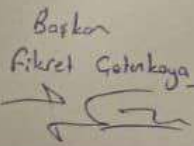 Başkan
Fikret Çetinkaya